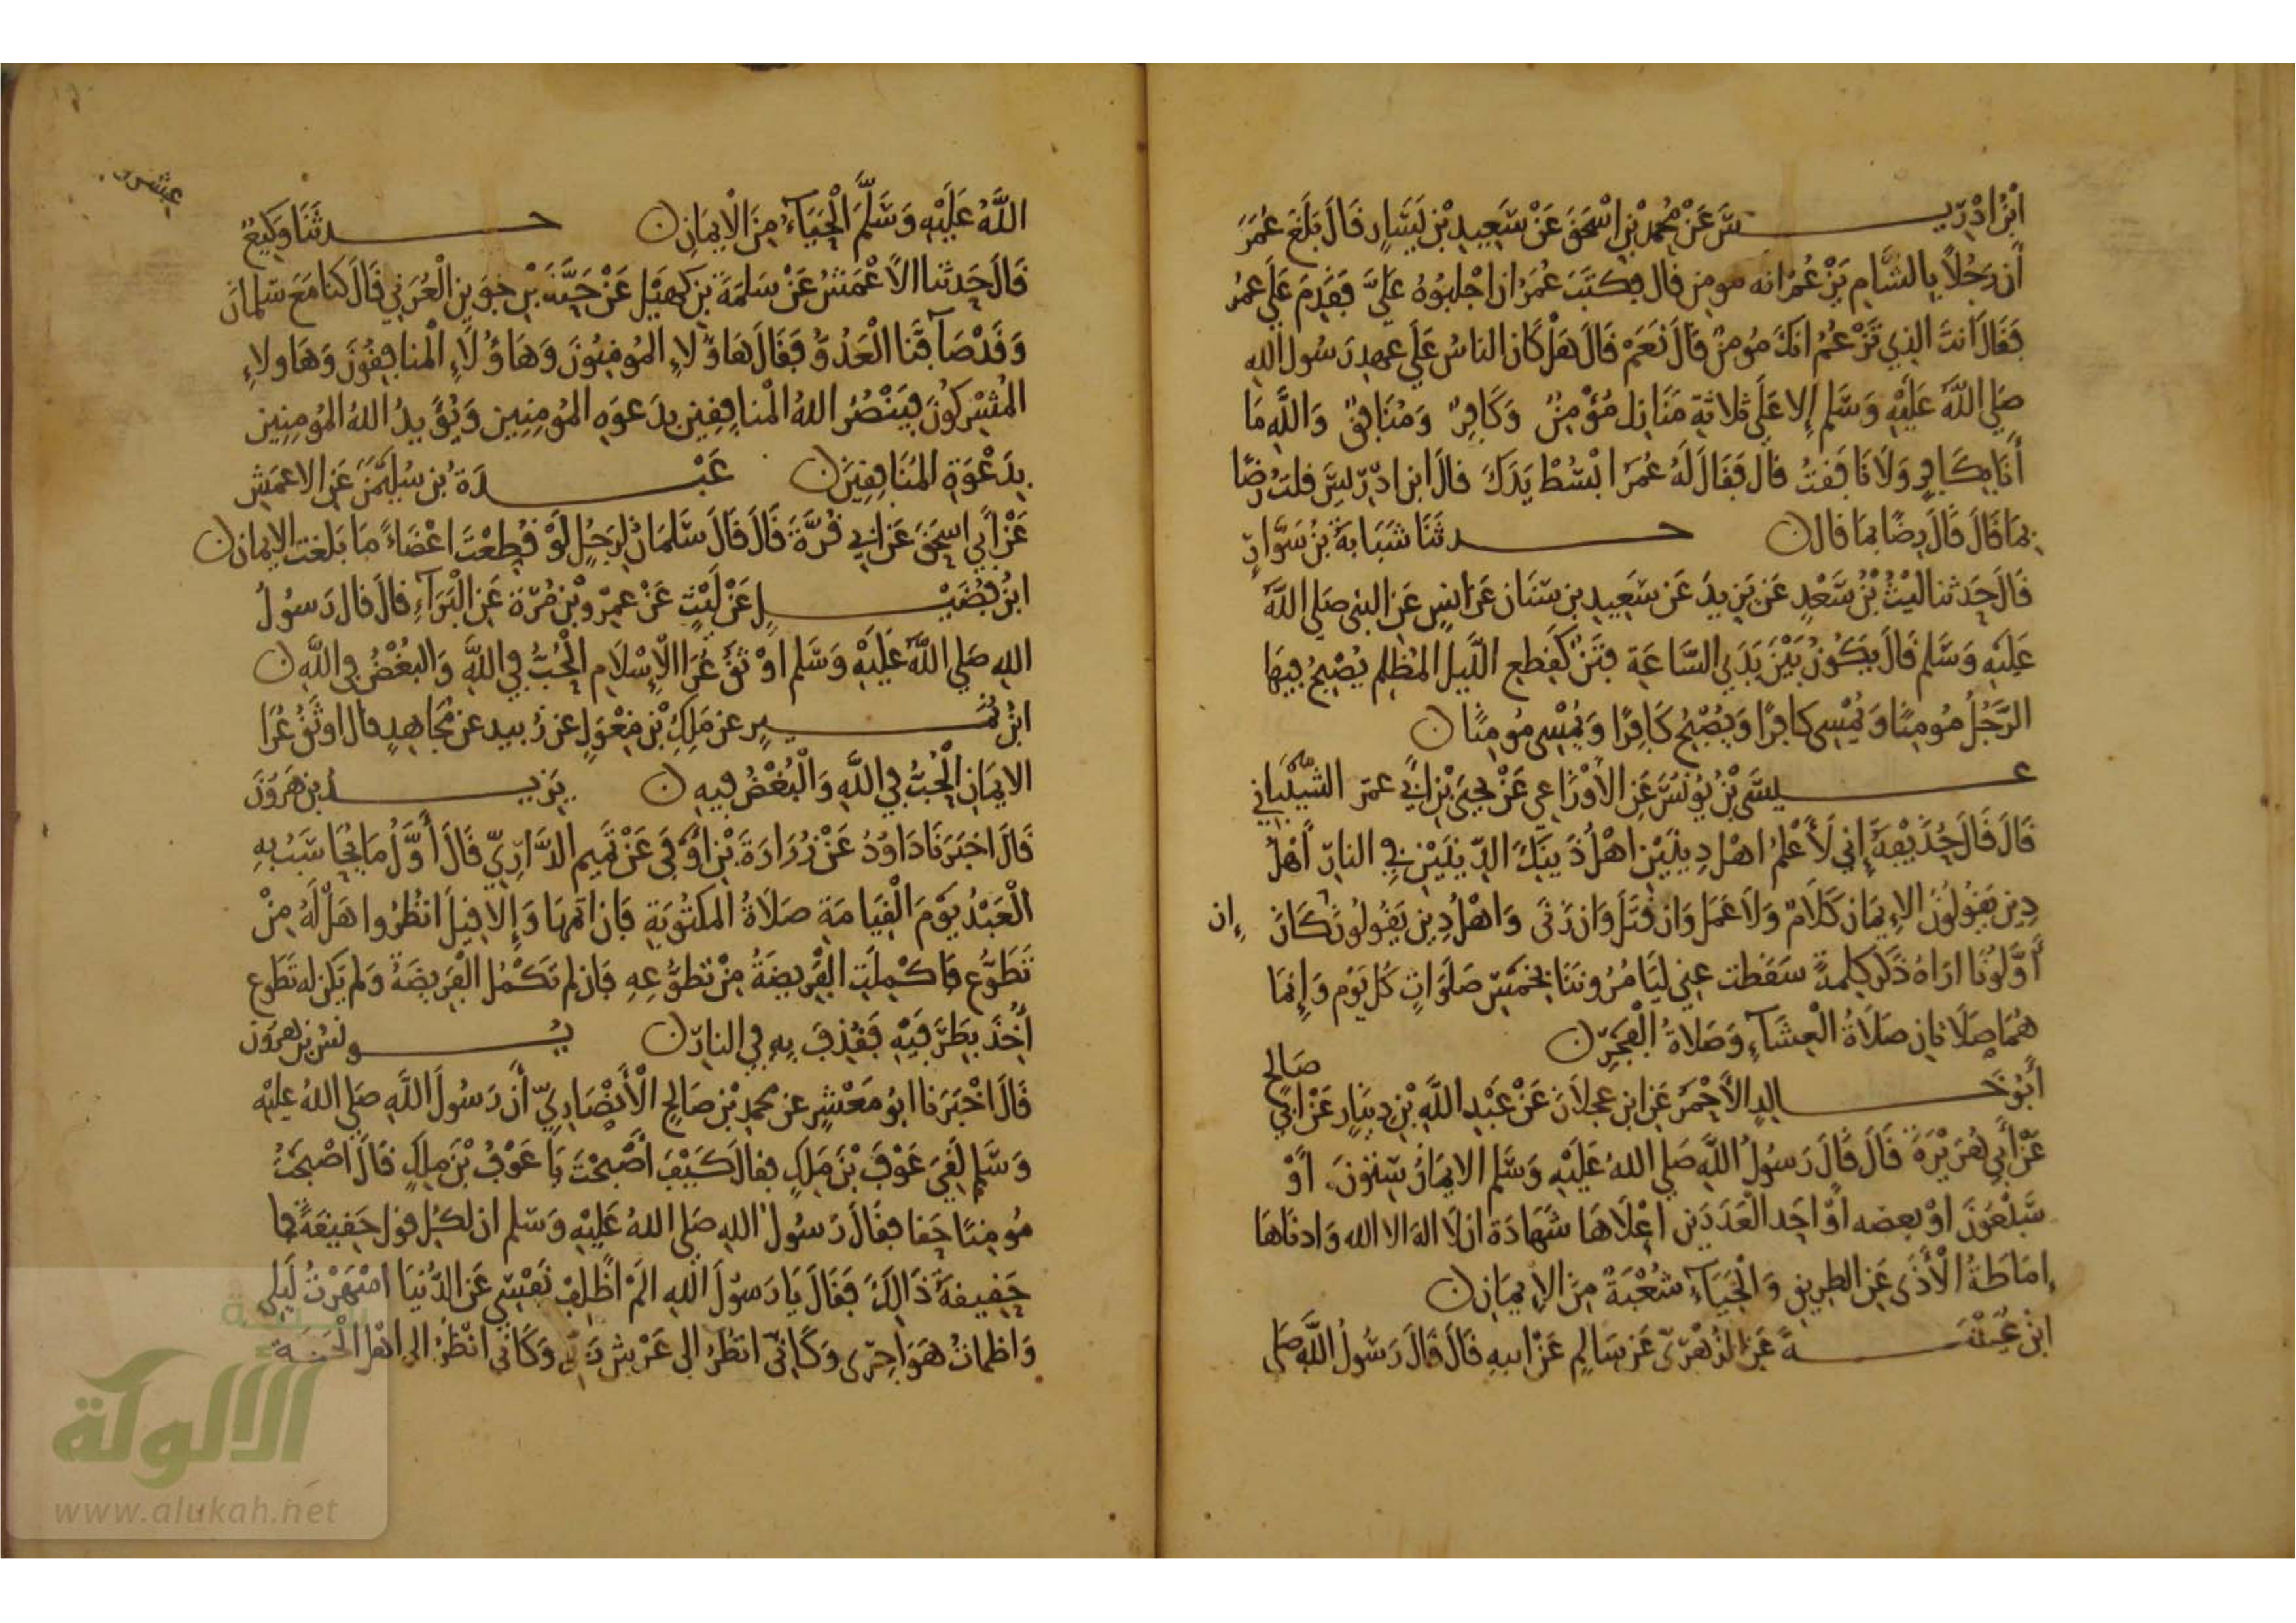 ابْنُ ادْرِيـــس عَنْ مُحَمد بْنِ اسْحَقَ عَنْ سَعِيدِ بْنِ يَسَارٍ قَالَ بَلَغَ عُمَرَ
أَن رَجُلاً بِالشَّامِ يَزْعُمُ انه مومن قال فكتَبَ عُمَرُ ان اجْلبُوهُ عَلَيَّ فَقَدِمَ عَلَى عمر
فَقَالَ انتَ الذِي تَزْعُمُ انكَ مُومنٌ قَالَ نَعَمْ قَالَ هَلْ كَانَ الناسُ عَلَى عهدِ رَسُول اللهِ
صَلى اللهُ عَلَيْهِ وَسَلم إلا عَلَى ثلاثةِ مَنَازِلَ مُؤْمِنٌ وَكَافِرٌ وَمُنَافِقٌ وَاللَّهِ مَا
أَنَا بِكَافِرٍ وَلاَ نَافقتُ قال فَقَالَ لَهُ عُمَرُ ابْسُطْ يَدَكَ قالَ ابن ادْرِيسَ قلتُ رضًا
بمَا قَالَ قَالَ رِضًا بمَا قال ن حـــدثَنَا شَبَابَةُ بْنُ سَوَّارٍ
قَالَ حَدثنا لَيْثُ بْنُ سَعْدٍ عَن يَزِيدَ عَن سَعِيدِ بن سنَان عَن انسٍ عَن النبي صَلى اللهُ
عَلَيهِ وَسَلم قَالَ يَكُونُ بَيْنَ يَدَيِ السَّاعَةِ فِتَنٌ كَقِطعِ اللَّيلِ المُظلِم يُصْبِحُ فِيهَا
الرَّجُلُ مُومِنًا وَيُمْسِي كافِرًا وَيُصْبِحُ كَافِرًا وَيُمْسِي مُومِنًا ن
عـــيسَى بْنُ يُونُسَ عَنِ الأَوْزَاعِي عَنْ يحيَى بْنِ ابي عمرو الشيْبَاني
قَالَ قَالَ حُذَيْفَةُ إني لَأَعْلمُ اهْلَ دِينَيْنِ اهْلُ ذَينِكَ الدِّينَيْنِ فِي النارِ أهْلُ
دِينٍ يَقُولُونَ الإِيمَان كَلَامٌ وَلاَ عَمَلَ وَان قَتَلَ وَان زَنَى وَاهْلُ دِينٍ يَقُولُونَ كَانَ
إن
أَوَّلُونَا ارَاهُ ذَكَرَ كلِمةً سَقَطت عني ليَامُرُونَنَا بخمْسِ صَلَوَاتٍ كُل يَوْم وَإِنمَا
هُمَا صَلَاتَانِ صَلَاةُ الْعِشَآءِ وَصَلاةُ الْفَجْرِ ن
أَبُو خَـــالِدِ الأَحْمَرُ عَنِ ابْنِ عَجلاَنَ عَنْ عَبْدِ اللَّهِ بْنِ دِينَارٍ عَنْ أَبِي
صَالح
عَنْ أَبِي هُرَيْرَةَ قَالَ قَالَ رَسُولُ اللَّهِ صَلى اللهُ عَلَيْهِ وَسَلم الايمَانُ سِتونَ اوْ
سَبْعُونَ اوْ بعضه اوْ احَد الْعَدَدَين اعْلاهَا شَهَادَة ان لَا اله الا الله وَادنَاهَا
إمَاطَةُ الْأَذَى عَنِ الطرِيقِ وَالْحَيَاءُ شُعْبَةٌ مِنَ الإِيمَانِ ن
ابْنُ عُيَيْنَـــةَ عَنِ الزُهْرِيّ عَنْ سَالِمٍ عَنْ ابيهِ قَالَ قَالَ رَسُولُ اللَّهِ صَلى
عشر
اللَّهُ عَلَيْهِ وَسَلَّمَ الْحَيَاءُ مِنَ الْايمَانِ ن حـــدثَنَا وَكِيعٌ
قَالَ حَدثنا الاَعْمَشُ عَنْ سَلمَةَ بنِ كهيْلٍ عَنْ حَبَّةَ بْنِ جُوَينٍ الْعُرَني قَالَ كنا مَعَ سَلمانَ
وَقَدْ صَافَفْنَا الْعَدُوَّ فَقَالَ هَاؤُلاءِ المُومِنُونَ وَهَاؤُلَاءِ الْمنَافِقُونَ وَهَاولاءِ
المُشْرِكُونَ فيَنْصُرُ اللهُ الْمنافِقِينَ بِدَعوَةِ المُومِنِينَ وَيُؤَيِدُ اللهُ المُومِنِينَ
بِدَعْوَةِ المُنَافِقِينَ ن عَبْـــدَةُ بْن سُلَيْمَنَ عَنِ الاعمَشِ
عَنْ أَبِي اسحَقَ عَنِ ابي قُرَّةَ قَالَ قَالَ سَلمَانُ لرَجُلٍ لَوْ قُطِعْتَ اعْضَاءً مَا بَلغت الايمَان ن
ابْنُ فُضَيْـــلٍ عَنْ لَيْثٍ عَنْ عمرو بْنِ مُرَّةَ عَنِ الْبَرَاءِ قالَ قال رَسُولُ
اللهِ صَلى اللهُ عَلَيْهِ وَسَلم اوْثَقُ عُرَا الْإِسْلَامِ الْحُبُّ فِي اللَّهِ وَالبُغْضُ فِي اللَّهِ ن
ابْنُ نُمَـــيرٍ عن مَلِكِ بْنِ مِغْوَلٍ عن زُبيد عن مُجَاهِدٍ قال اوثَقُ عُرَا
الايمَانِ الْحُبُّ فِي اللَّهِ وَالْبُغْضُ فِيهِ ن يَزِيـــدُ بن هَرُونَ
قَالَ اخْبَرَنَا دَاوُدُ عَنْ زُرَارَةَ بْنِ اوْفَى عَنْ تَمِيمٍ الدَّارِيِّ قَالَ أوَّلُ مَا يُحَاسَبُ بهِ
الْعَبْدُ يَوْمَ الْقِيَامَةِ صَلَاةُ المَكتُوبَةِ فَإن اتمهَا وَإلا قِيلَ انظُرُوا هَلْ لَهُ مِنْ
تَطَوُّعٍ فَاكْمِلَتِ الْفَرِيضَةُ مِنْ تطَوُّعِهِ فَان لم تكمُلِ الْفَرِيضَةُ وَلم يَكن له تَطَوع
أُخِذَ بِطَرَفيْهِ فَقُذِفَ بِهِ فِي النارِ ن يُـــونُسُ بن هرون
قَالَ اخْبَرَنا ابُو مَعْشرٍ عن محمدِ بْنِ صَالحٍ الْأَنْصَارِيِّ أَن رَسُولَ اللَّهِ صَلى اللهُ عليْهِ
وَسَلم لَقِيَ عَوْفَ بْنَ مَلِكٍ فقال كَيْفَ اصْبحْتَ يَا عَوْفُ بْنَ ملِكٍ قَالَ اصْبَحتُ
مُومِنًا حَقا فقَالَ رَسُولُ اللهِ صَلى اللهُ عَلَيْهِ وَسَلم ان لكُل قول حَقِيقَةً فما
حَقِيقةُ ذَالِكَ فَقَالَ يَا رَسُولَ اللهِ الَمْ اظْلِفْ نَفْسِي عَنِ الدُّنيَا اسْهَرْتُ لَيلِي
وَاظمَاتُ هَوَاجِرِي وَكَانِّي انظُرُ الى عَرْشِ رَبِّي وَكَانِّي انْظُرُ الى اهْلِ الْجَنةِ
شبكة
الألوكة
www.alukah.net